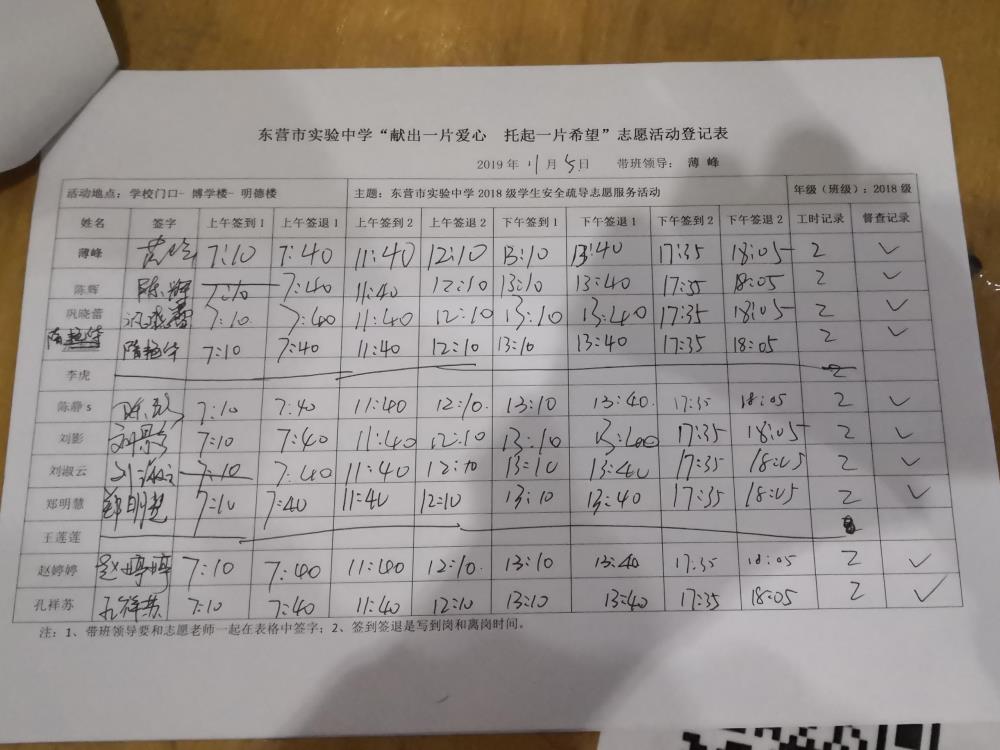 东营市实验中学“献出一片爱心 托起一片希望”志愿活动登记表
2019年 11月 5日 带班领导: 薄峰
活动地点: 学校门口- 博学楼- 明德楼 主题: 东营市实验中学2018级学生安全疏导志愿服务活动 年级(班级): 2018级
姓名 签字 上午签到1 上午签退1 上午签到2 上午签退2 下午签到1 下午签退1 下午签到2 下午签退2 工时记录 督查记录
薄峰 薄峰 7:10 7:40 11:40 12:10 13:10 13:40 17:35 18:05 2 ✓
陈辉 陈辉 7:10 7:40 11:40 12:10 13:10 13:40 17:35 18:05 2 ✓
巩晓蕾 巩晓蕾 7:10 7:40 11:40 12:10 13:10 13:40 17:35 18:05 2 ✓
隋艳华 隋艳华 7:10 7:40 11:40 12:10 13:10 13:40 17:35 18:05 2 ✓
李虎 2
陈静s 7:10 7:40 11:40 12:10 13:10 13:40 17:35 18:05 2 ✓
刘影 刘影 7:10 7:40 11:40 12:10 13:10 13:40 17:35 18:05 2 ✓
刘淑云 刘淑云 7:10 7:40 11:40 12:10 13:10 13:40 17:35 18:05 2 ✓
郑明慧 郑明慧 7:10 7:40 11:40 12:10 13:10 13:40 17:35 18:05 2 ✓
王莲莲
赵婷婷 赵婷婷 7:10 7:40 11:40 12:10 13:10 13:40 17:35 18:05 2 ✓
孔祥苏 孔祥苏 7:10 7:40 11:40 12:10 13:10 13:40 17:35 18:05 2 ✓
注: 1、带班领导要和志愿老师一起在表格中签字; 2、签到签退是写到岗和离岗时间。